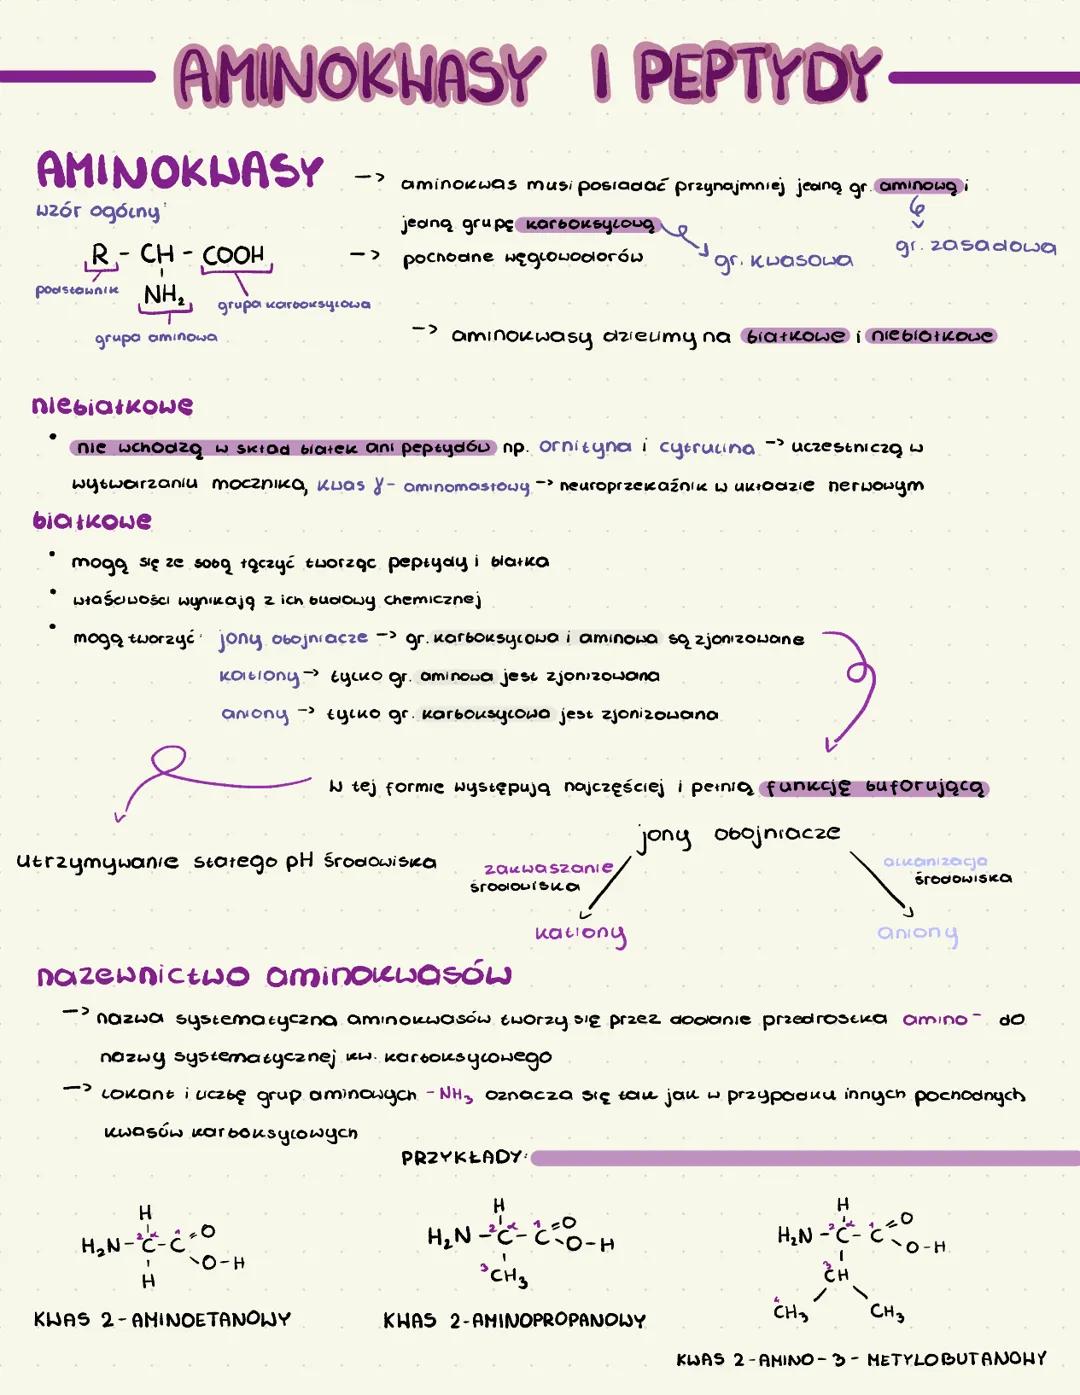 AMINOKWASY I PEPTYDY
AMINOKWASY
wzór ogólny:
R - CH - COOH
podstawnik
NH₂
grupa karboksylowa
grupa aminowa
-> aminokwas musi posiadać przynajmniej jedną gr. aminową i
jedną grupę karboksylową
gr. zasadowa
gr. kwasowa
-> pochodne węglowodorów
-> aminokwasy dzielimy na białkowe i niebiałkowe
niebiałkowe
• nie wchodzą w skład białek ani peptydów np. ornityna i cytrulina -> uczestniczą w
wytwarzaniu mocznika, kwas γ- aminomasłowy -> neuroprzekaźnik w układzie nerwowym
białkowe
• mogą się ze sobą łączyć tworząc peptydy i białka
• właściwości wynikają z ich budowy chemicznej
• mogą tworzyć: jony obojniacze -> gr. karboksylowa i aminowa są zjonizowane
kationy -> tylko gr. aminowa jest zjonizowana
aniony -> tylko gr. karboksylowa jest zjonizowana
w tej formie występują najczęściej i pełnią funkcję buforującą
utrzymywanie stałego pH środowiska
jony obojniacze
zakwaszanie
środowiska
alkanizacja
środowiska
kationy
aniony
nazewnictwo aminokwasów
-> nazwa systematyczna aminokwasów tworzy się przez dodanie przedrostka amino- do
nazwy systematycznej kw. karboksylowego
-> lokant i liczbę grup aminowych -NH₃ oznacza się tak jak w przypadku innych pochodnych
kwasów karboksylowych
PRZYKŁADY:
H
H₂N-²Cα-¹C=O
O-H
H
KWAS 2-AMINOETANOWY
H
H₂N-²Cα-¹C=O
O-H
³CH₃
KWAS 2-AMINOPROPANOWY
H
H₂N-²Cα-¹C=O
O-H
³CH
⁴CH₃ CH₃
KWAS 2-AMINO-3-METYLOBUTANOWY